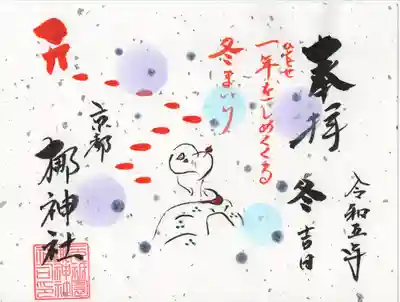 奉拝
冬吉日
令和五年
一年をしめくくる
ひととせ
冬まいり
京都
梛神社